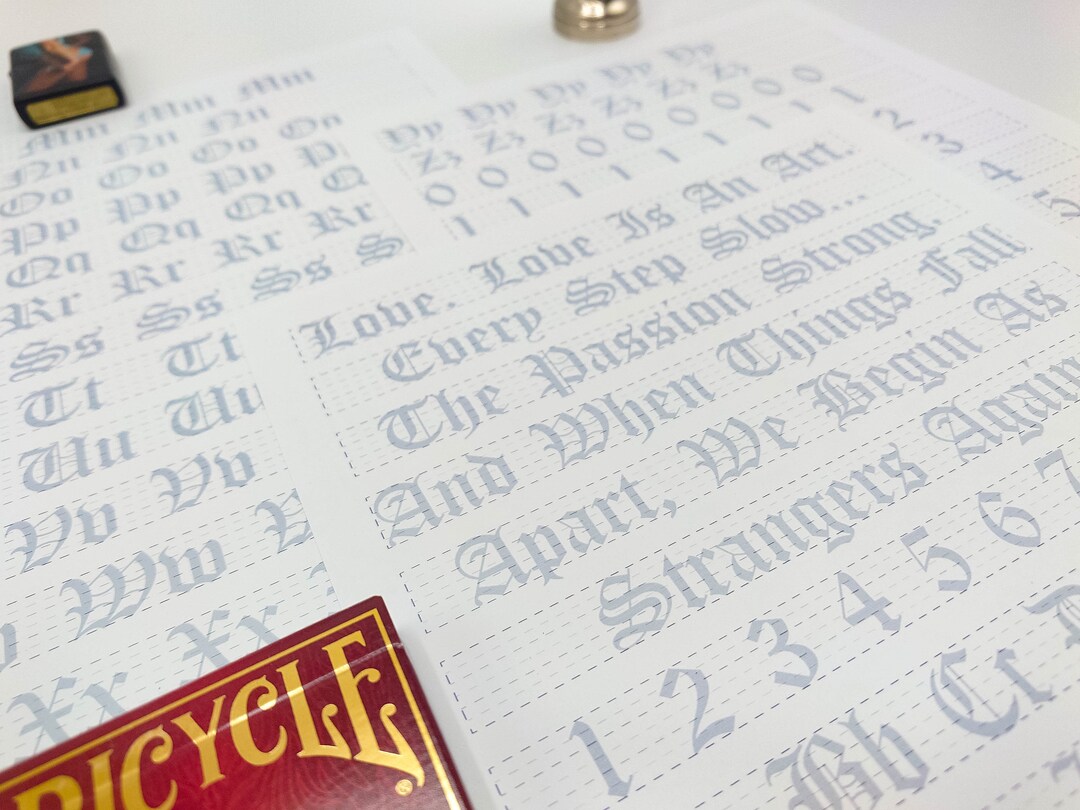 Mm Mm Mm
Nn Nn Nn
Oo Oo Oo Oo
Pp Pp Pp P
Qq Qq Qq Q
Rr Rr Rr Rr
Ss Ss Ss S
Tt Tt
Uu Uu
Vv Vv
Ww
Xx Xx
Yy Yy Yy Yy Yy
Zz Zz Zz Zz Zz
0 0 0 0 0 0 0 0 0
1 1 1 1 1 1 1 1 1
2
3
4
5
Love. Love Is An Art.
Every Step Slow...
The Passion Strong.
And When Things Fall
Apart, We Begin As
Strangers Again
1 2 3 4 5 6 7
Bb Cc D
BICYCLE